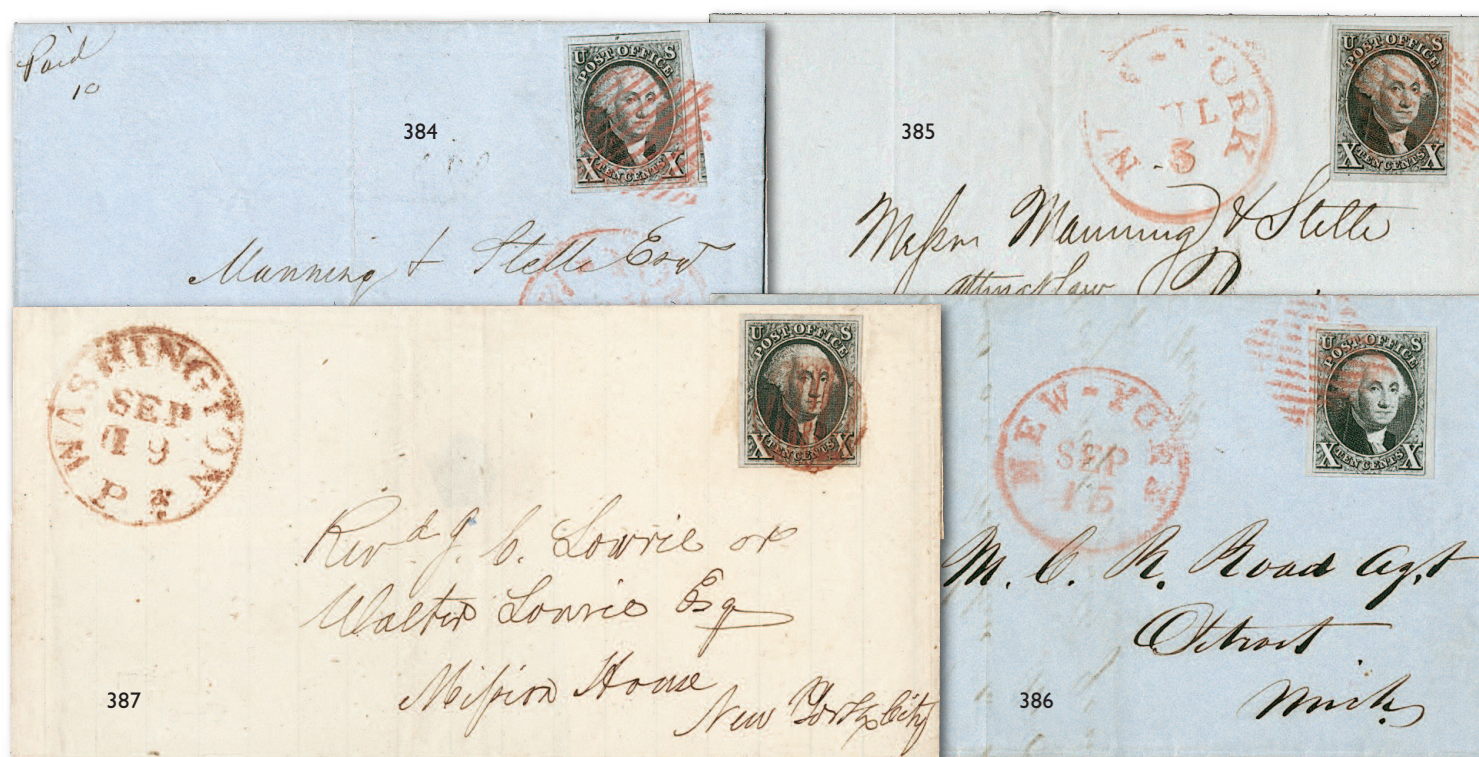 Paid
10
384
U S
POST OFFICE
X TEN CENTS X
Manning & Stelle Esqr
385
NEW-YORK
JUL
3
U S
POST OFFICE
X TEN CENTS X
Messrs Manning & Stelle
Attys at Law
WASHINGTON
SEP
19
U S
POST OFFICE
X TEN CENTS X
Revd J. C. Lowrie or
Walter Lowrie Esq
Mission House
New York City
387
NEW-YORK
SEP
15
U S
POST OFFICE
X TEN CENTS X
M. C. R. Road Agt
Detroit
Mich
386